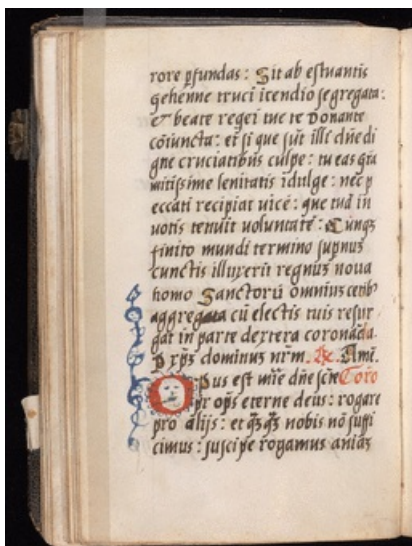 rore ꝓfundas: Sit ab estuantis
gehenne truci īcendio segregata:
et beate regei tue te donante
cōiuncta: et si que sūt ille dn̄e di
gne cruciatibus culpe: tu eas gr̄a
mitissime lenitatis īdulge: nec p
eccati recipiat uicē: que tuā in
uotis tenuit voluntatē: Cunqꝫ
finito mundi termino suꝑnuꝫ
cunctis illuxerit regnuꝫ noua
homo Sanctorū omniuꝫ cetibꝫ
aggregata cū electis tuis resur
gat in parte dextera coronāda.
P xp̄ꝫ dominuꝫ nr̄m. Amē.
Opus est mīe dn̄e sc̄e
pr̄ op̄s eterne deus: rogare
pro alijs: et qꝫqꝫ nobis nō suffi
cimus: suscipe rogamus aniaꝫ